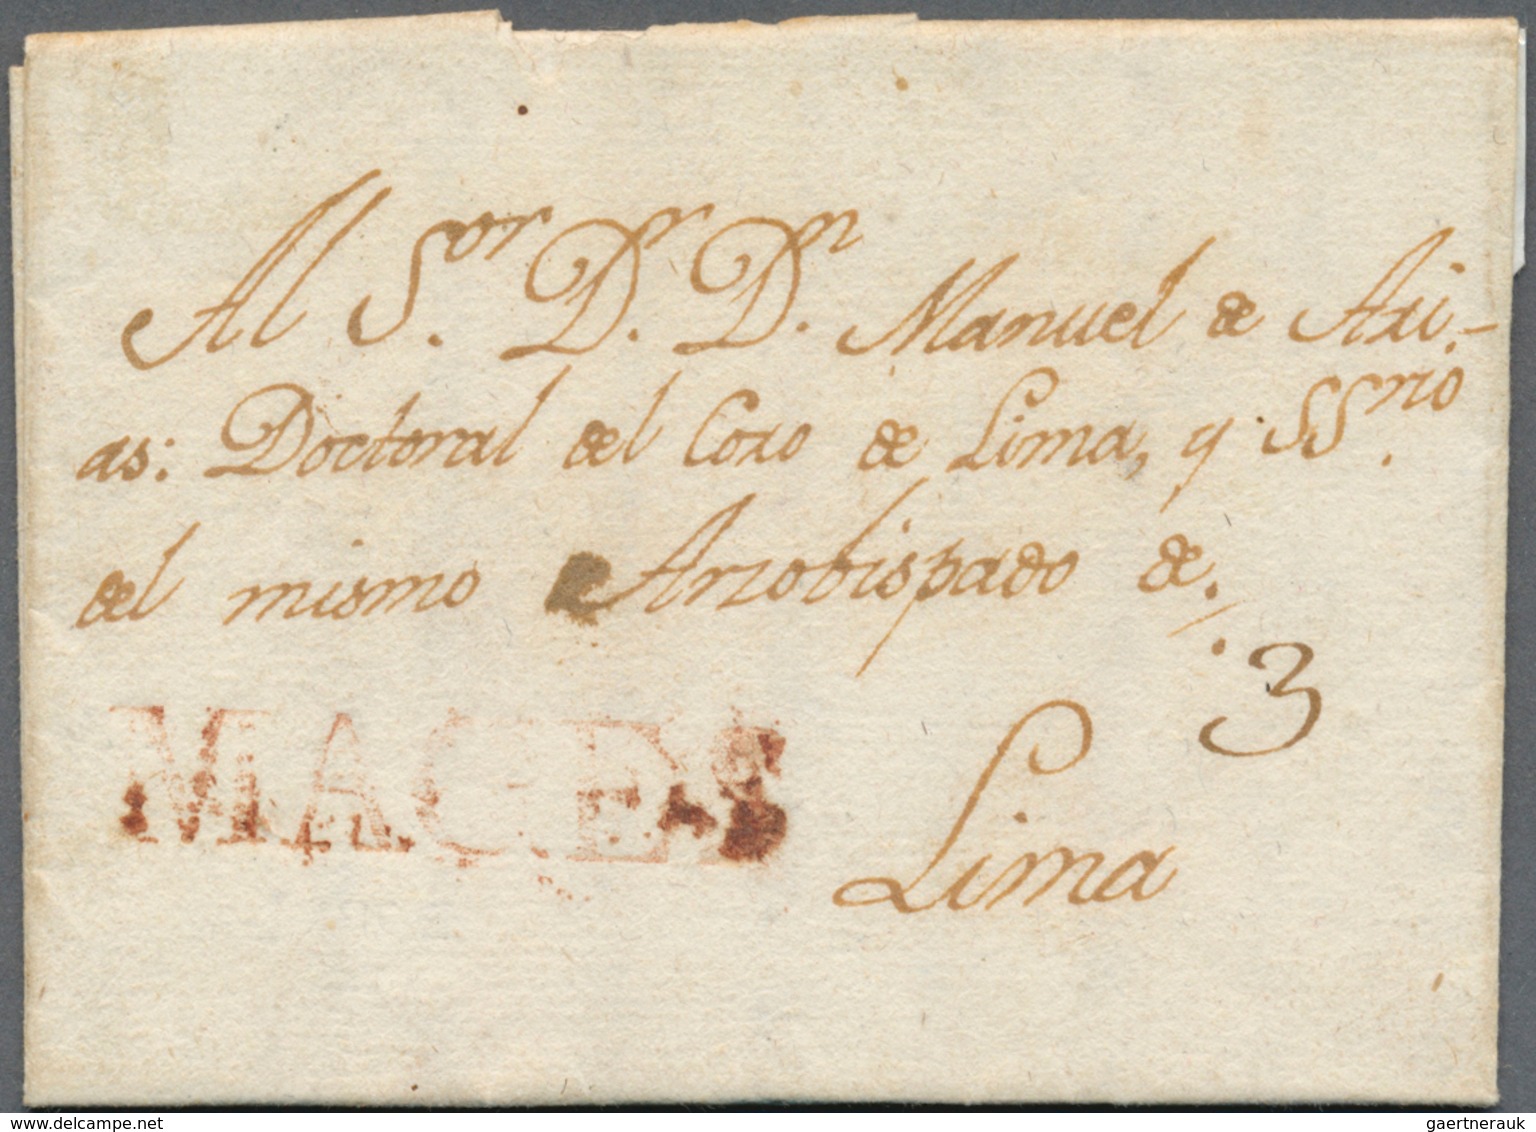 Al S.or D.r D.n Manuel de Ari-
as: Doctoral del Coro de Lima, y SS.rio
del mismo Arzobispado de.
3
MAGES
Lima
gaertnerauk